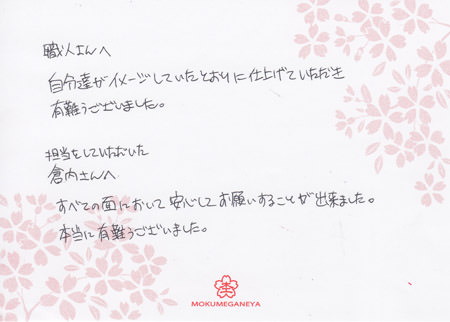 職人さんへ
自分達がイメージしていたとおりに仕上げていただき
有難うございました。
担当をしていただいた
倉内さんへ
すべての面において安心してお願いすることが出来ました。
本当に有難うございました。
MOKUMEGANEYA